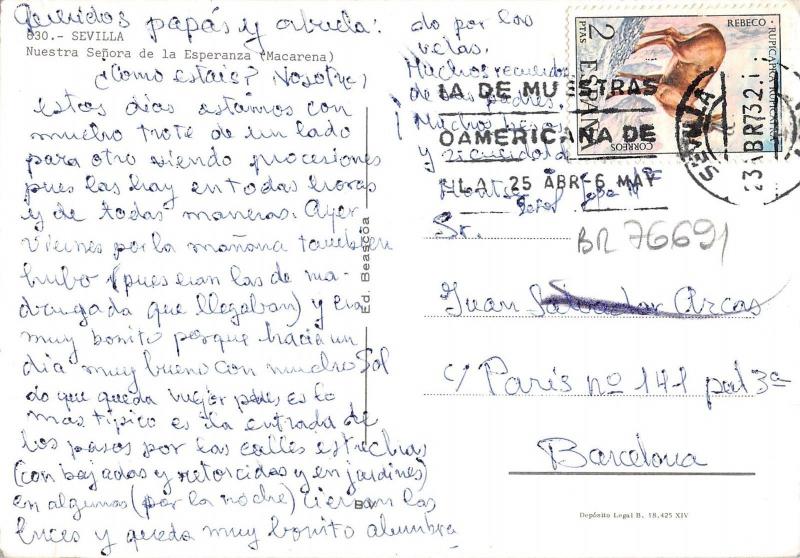 Queridos papás y abuela:
930.- SEVILLA
Nuestra Señora de la Esperanza (Macarena)
¿Como estais? Nosotros
estos dias estamos con
mucho trote de un lado
para otro viendo procesiones
pues las hay en todas horas
y de todas maneras. Ayer
viernes por la mañana tambien
hubo (pues eran las de ma-
drugada que llegaban) y era
muy bonito porque hacia un
dia muy bueno con mucho Sol
do que queda mejor pues es lo
mas tipico es la entrada de
los pasos por las calles estrechas
(con bajadas y retorcidas y en jardines)
en algunas (por la noche) cierran las
luces y queda muy bonito alumbra
do por las
velas.
Muchos recuerdos
de los padres.
Muchos besos
y recuerdos de
Montse
Ed. Beascoa
BV
REBECO - RUPICAPRA RUPICAPRA
2 PTAS
ESPAÑA
CORREOS
LA DE MUESTRAS
OAMERICANA DE
LLA 25 ABR-6 MAY
SEVILLA
23 ABR 73 21
BR 76691
Sr.
Juan Salvador Arcas
c/ París nº 141 pral 3ª
Barcelona
Depósito Legal B. 18.425 XIV